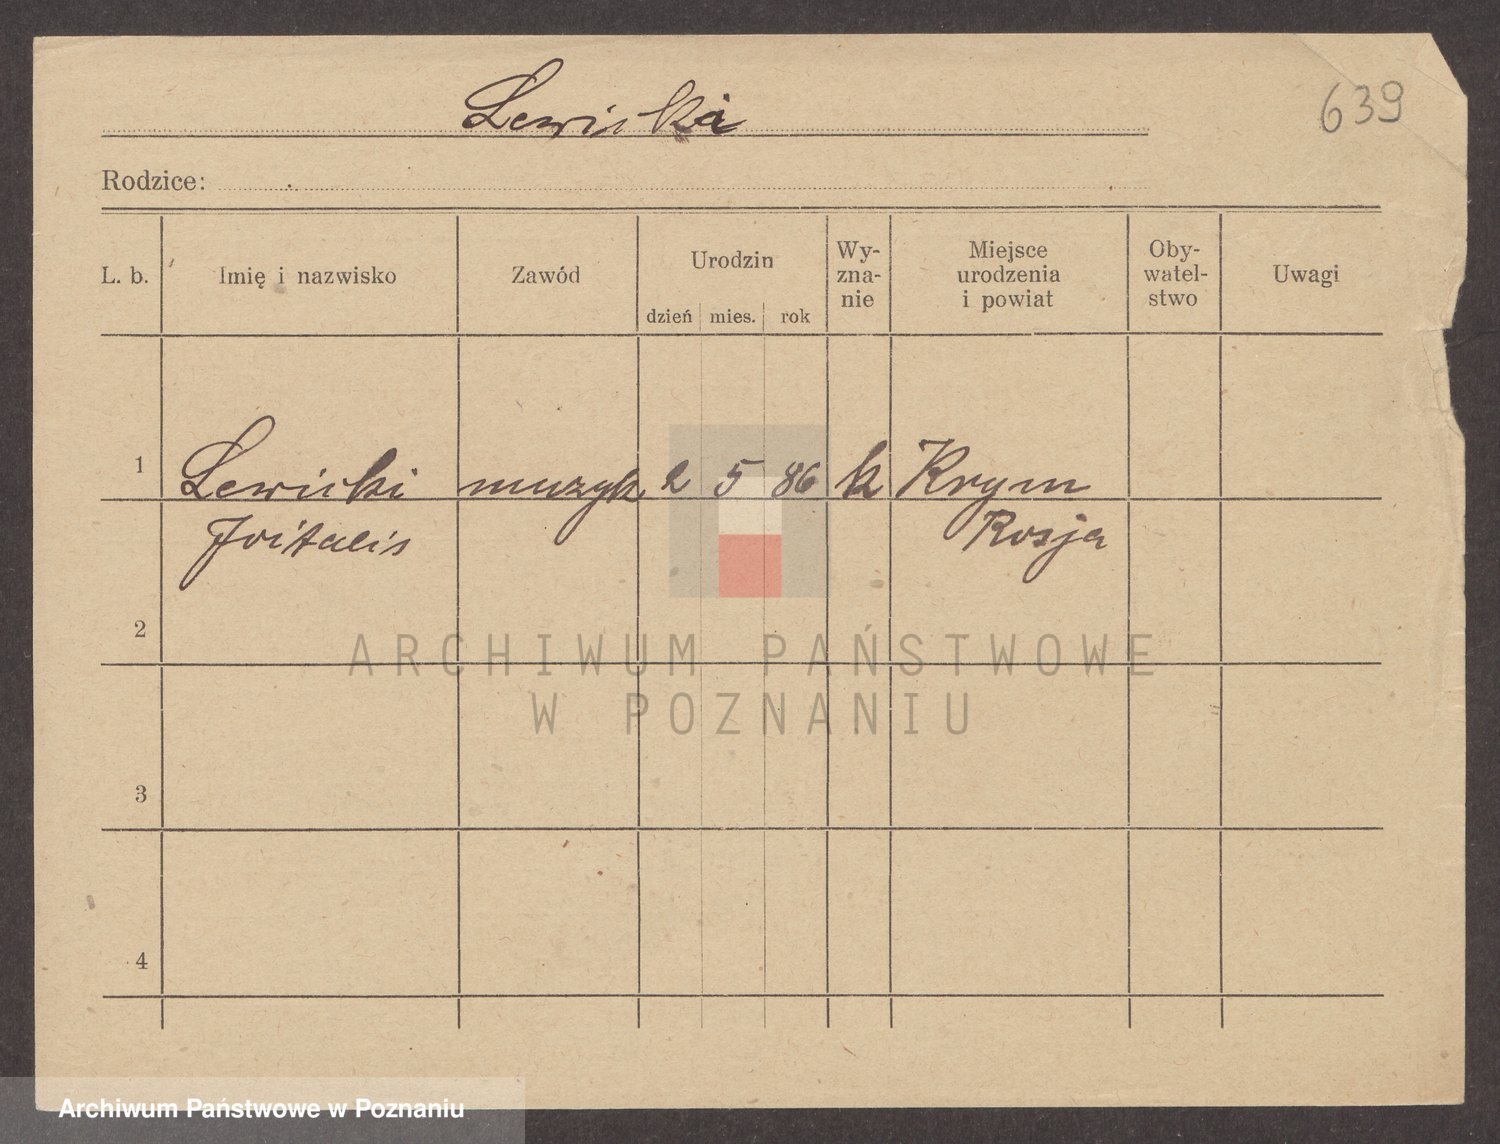 Lewicki
639
Rodzice:
L. b. Imię i nazwisko Zawód Urodzin dzień mies. rok Wy-zna-nie Miejsce urodzenia i powiat Oby-watel-stwo Uwagi
1 Lewicki muzyk 2 5 86 k Krym
Witalis Rosja
2
ARCHIWUM PAŃSTWOWE
W POZNANIU
3
4
Archiwum Państwowe w Poznaniu